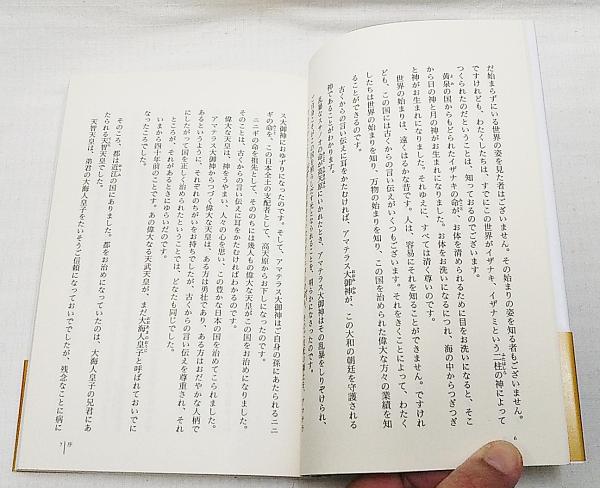 だ始まらずにいる世界の姿を見た者はございません。その始まりの姿を知る者もございません。
ですけれども、わたくしたちは、すでにこの世界がイザナキ、イザナミという二柱の神によって
つくられたのだということは、知っておるのでございます。
黄泉の国からもどられたイザナキの命が、お体を清められるために目をお洗いになると、そこ
から日の神と月の神がお生まれになりました。お体をお洗いになるにつれ、海の中からつぎつぎ
と神がお生まれになりました。それゆえに、すべては清く尊いのです。
世界の始まりは、遠くはるかな昔です。人は、容易にそれを知ることができません。ですけれ
ども、この国には古くからの言い伝えがいくつもございます。それをきくことによって、わたく
したちは世界の始まりを知り、万物の始まりを知り、この国を治められた偉大な方々の業績を知
ることができるのです。
古くからの言い伝えに耳をかたむければ、アマテラス大御神が、この大和の朝廷を守護される
神であることがわかります。
乱暴なスサノオの命が高天原にいかれたとき、アマテラス大御神はその乱暴をしりぞけられ、
6
ス大御神におゆずりになったのです。そして、アマテラス大御神はご自身の孫にあたられるニニ
ギの命を、この日本全土の支配者として、高天原からお下しになったのです。
ニニギの命を祖先として、そののちには幾人もの偉大な天皇がこの国をお治めになりました。
そのことは、古くからの言い伝えに耳をかたむければわかるのです。
偉大な天皇は、神をうやまい、人々の心を思い、この豊かな日本の国を治めてこられました。
アマテラス大御神からつづく偉大な天皇は、ある方は勇壮であり、ある方はおだやかな人柄で
あるというように、それぞれのちがいをお持ちでしたが、古くからの言い伝えを尊重され、それ
にしたがって国を正しく治められたということでは、どなたも同じでした。
ところが、それがあるときにゆらいだのです。
いまから四十年前のことです。あの偉大なる天武天皇が、まだ大海人皇子と呼ばれておいでに
なったころでした。
そのころ、都は近江の国にありました。都をお治めになっていたのは、大海人皇子の兄君にあ
たられる天智天皇でした。
天智天皇は、弟君の大海人皇子をたいそうご信頼になっておいででしたが、残念なことに病に
7 序